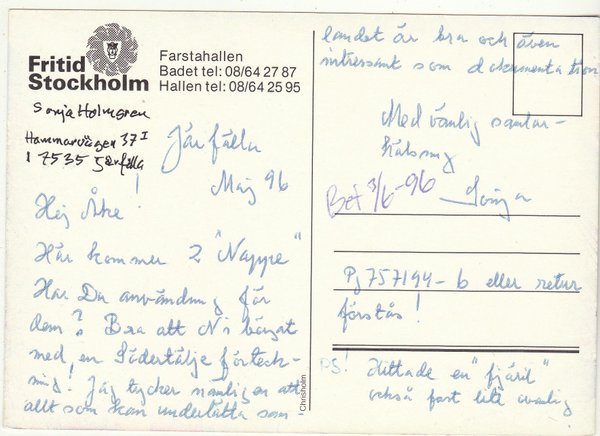 Fritid
Stockholm
Farstahallen
Badet tel: 08/64 27 87
Hallen tel: 08/64 25 95
Sonja Holmgren
Hammarvägen 37 I
17535 Järfälla
Järfälla
Maj 96
Hej Åke!
Här kommer 2 "Nappe"
Har Du användning för
dem? Bra att Ni börjat
med en Södertälje förteck-
ning! Jag tycker nämligen att
allt som kan underlätta sam-
Chrisholm
landet är bra och även
intressant som dokumentation
Med vänlig samlar-
hälsning
Sonja
Bet 3/6-96
Pg 757194-6 eller retur
förstås!
PS! Hittade en "fjäril"
också fast lite ovanlig